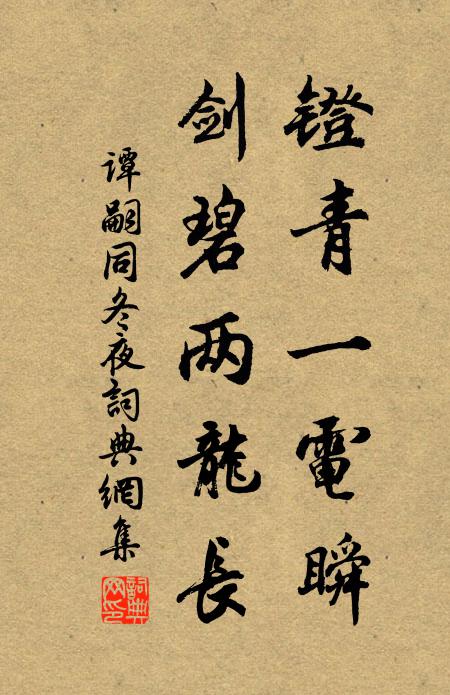 镫青一電瞬
剑碧两龍長
谭嗣同冬夜詞典網集
詞典網印